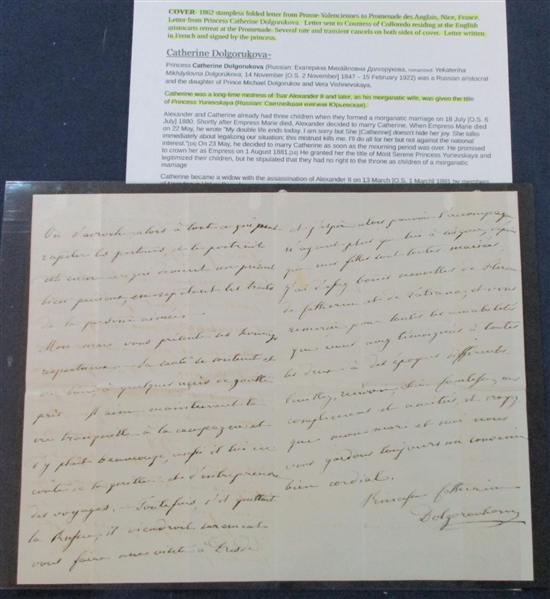 COVER- 1862 stampless folded letter from Prusse-Valenciennes to Promenade des Anglais, Nice, France.
Letter from Princess Catherine Dolgorukova. Letter sent to Countess of Colloredo residing at the English
aristocrats retreat at the Promenade. Several rate and transient cancels on both sides of cover. Letter written
in French and signed by the princess.
Catherine Dolgorukova-
Princess Catherine Dolgorukova (Russian: Екатерина Михайловна Долгорукова, romanized: Yekaterina
Mikhaylovna Dolgorukova; 14 November [O.S. 2 November] 1847 – 15 February 1922) was a Russian aristocrat
and the daughter of Prince Michael Dolgorukov and Vera Vishnevskaya.
Catherine was a long-time mistress of Tsar Alexander II and later, as his morganatic wife, was given the title
of Princess Yurievskaya (Russian: Светлейшая княгиня Юрьевская).
Alexander and Catherine already had three children when they formed a morganatic marriage on 18 July [O.S. 6
July] 1880. Shortly after Empress Marie died, Alexander decided to marry Catherine. When Empress Marie died
on 22 May, he wrote "My double life ends today. I am sorry but She [Catherine] doesn't hide her joy. She talks
immediately about legalizing our situation; this mistrust kills me. I'll do all for her but not against the national
interest."[15] On 23 May, he decided to marry Catherine as soon as the mourning period was over. He promised
to crown her as Empress on 1 August 1881.[16] He granted her the title of Most Serene Princess Yurievskaya and
legitimized their children, but he stipulated that they had no right to the throne as children of a morganatic
marriage
Catherine became a widow with the assassination of Alexander II on 13 March [O.S. 1 March] 1881 by members
On s'accroche alors à tout ce qui peut
rapeler les
bien précieux, les traits
de la personne aimée.
Mon mari vous présente ses hommages
La santé se soutient
bien, à quelques de goutte
près. Il aime maintenant la
vie tranquille à la campagne et
s'y plait beaucoup, mais il lui en
coûte de et d'entreprendre
des voyages. Toutefois s'il quittait
la Russie, il viendroit surement
vous faire une visite à
et j'espère alors pouvoir l'accompagner
n'ayant plus
que mes filles sont toutes mariées.
J'ai d'assez bonnes nouvelles de
de Catherine et de et vous
remercie pour toutes les amabilités
que vous témoignées à toutes
les deux à des époques différentes.
compliments et amitiés, et croyez
que mon mari et moi nous
vous gardons toujours un souvenir
bien cordial.
Princesse Catherine
Dolgorouky